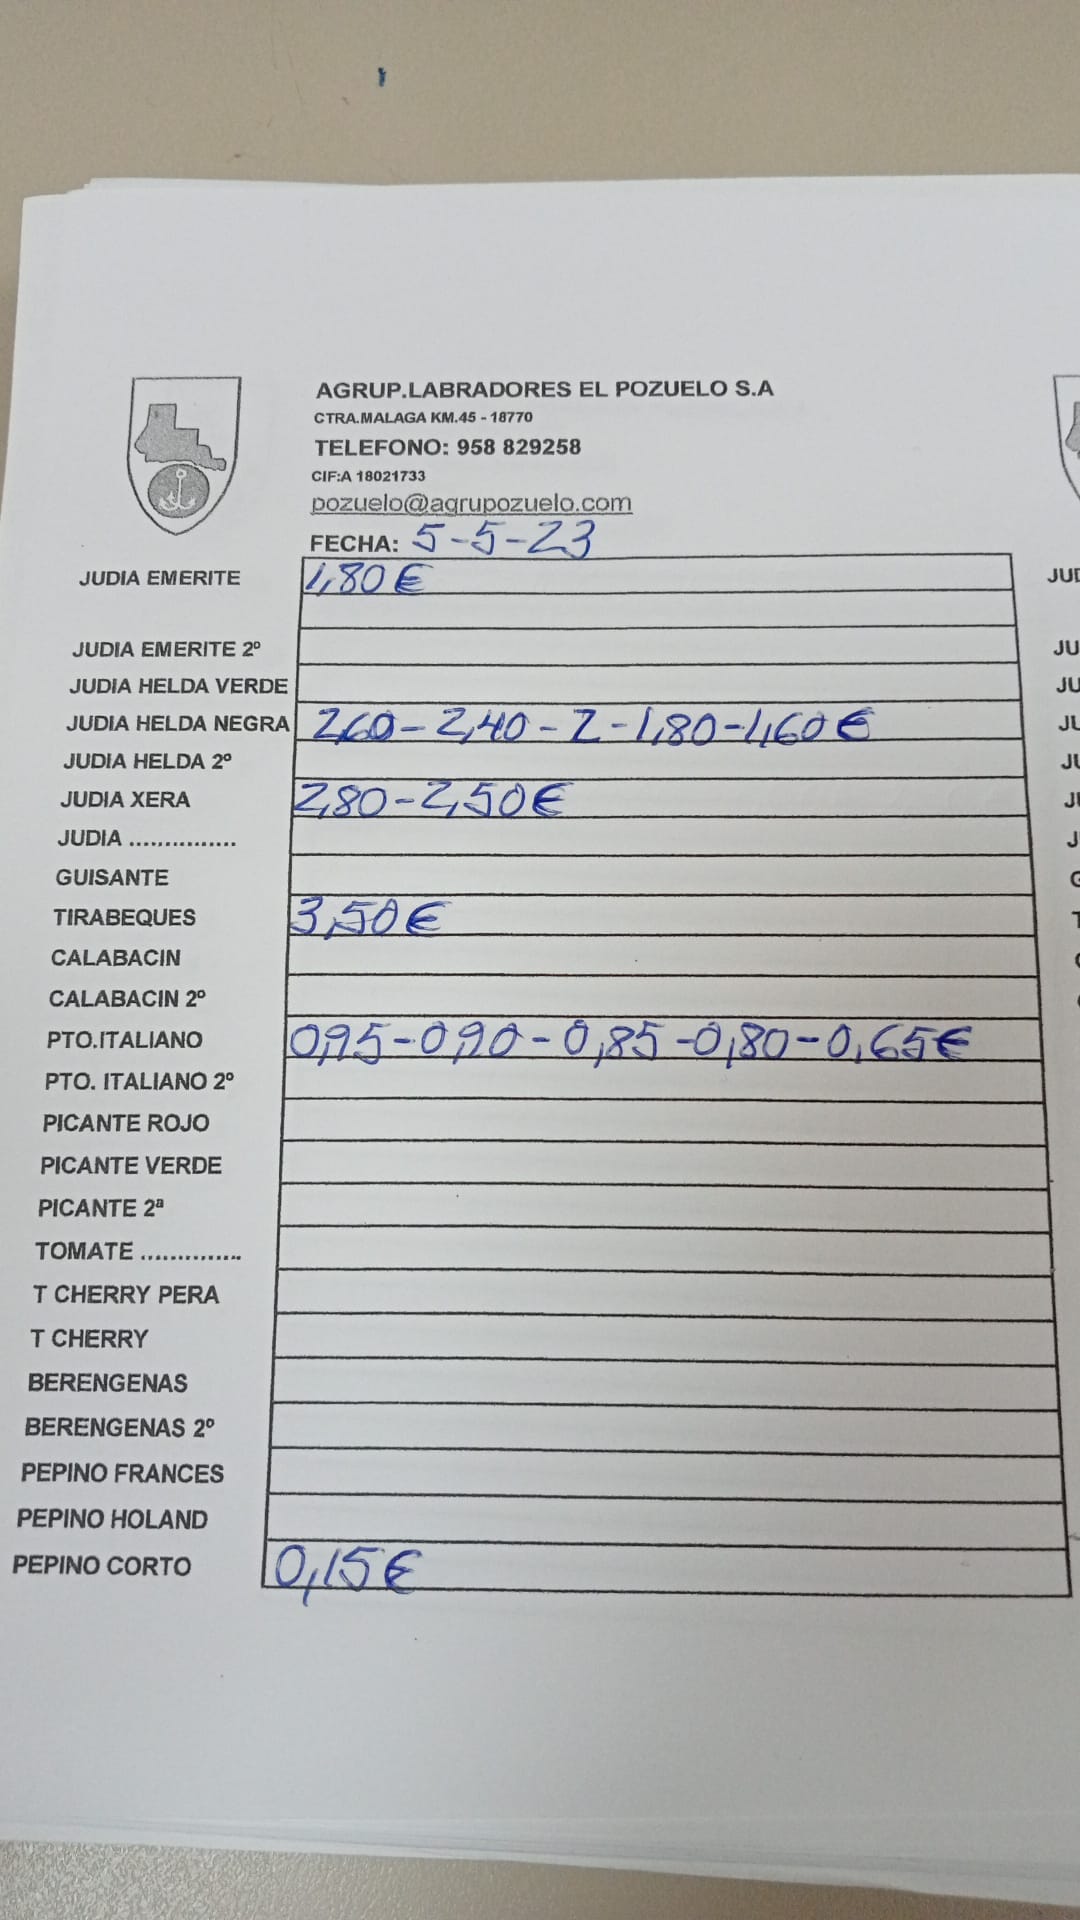 AGRUP.LABRADORES EL POZUELO S.A
CTRA.MALAGA KM.45 - 18770
TELEFONO: 958 829258
CIF:A 18021733
pozuelo@agrupozuelo.com
FECHA: 5-5-23
JUDIA EMERITE 1,80€
JUDIA EMERITE 2º
JUDIA HELDA VERDE
JUDIA HELDA NEGRA 2,60-2,40-2-1,80-1,60€
JUDIA HELDA 2º
JUDIA XERA 2,80-2,50€
JUDIA ...............
GUISANTE
TIRABEQUES 3,50€
CALABACIN
CALABACIN 2º
PTO.ITALIANO 0,95-0,90-0,85-0,80-0,65€
PTO. ITALIANO 2º
PICANTE ROJO
PICANTE VERDE
PICANTE 2ª
TOMATE ..............
T CHERRY PERA
T CHERRY
BERENGENAS
BERENGENAS 2º
PEPINO FRANCES
PEPINO HOLAND
PEPINO CORTO 0,15€